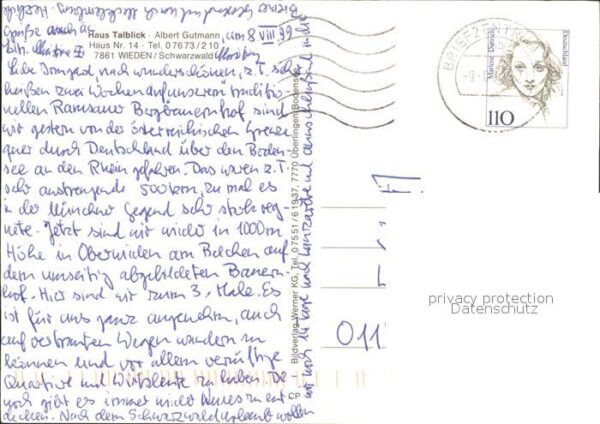 Haus Talblick · Albert Gutmann
Haus Nr. 14 · Tel. 0 76 73 / 2 10
7861 WIEDEN / Schwarzwald
am 8. VIII. 99
Grüße auch an
Liebe Irmgard, nach wunderschönen, z.T. sehr
heißen zwei Wochen auf unserem traditio-
nellen Ramsauer Bergbauernhof sind
wir gestern von der österreichischen Grenze
quer durch Deutschland über den Boden-
see an den Rhein gefahren. Das waren z.T.
sehr anstrengende 500 km, zumal es
in der Münchner Gegend sehr stark reg-
nete. Jetzt sind wir wieder in 1000 m
Höhe in Oberwieden am Belchen auf
dem umseitig abgebildeten Bauern-
hof. Hier sind wir zum 3. Male. Es
ist für uns ganz angenehm, auch
auf vertrauten Wegen wandern zu
können und vor allem vernünftige
Quartiere und Wirtsleute zu haben. Den-
noch gibt es immer wieder Neues zu ent-
decken. Nach dem Schwarzwaldurlaub wollen
wir noch
Bildverlag Werner KG, Tel. 0 75 51 / 6 19 37, 7770 Überlingen/Bodensee
CP
BRIEFZENTR
Marlene Dietrich
Deutschland
110
011
privacy protection
Datenschutz